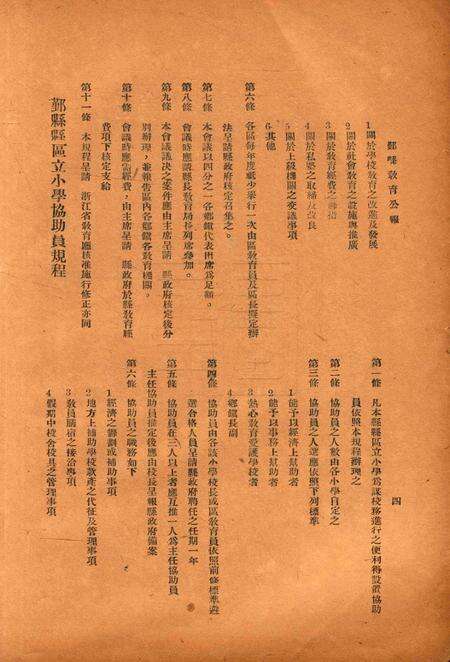 鄞縣教育公報
四
1關於學校教育之改進及發展
2關於社會教育之設施與推廣
3關於教育經費之籌措
4關於私塾之取締及改良
5關於上級機關之交議事項
6其他
第六條 各區每年度至少舉行一次由區教育員及區長擬定辦
法呈請縣政府核定召集之。
第七條 本會議以四分之一各鄉鎮代表出席為足額。
第八條 會議時應請縣長教育局長列席參加。
第九條 本會議議決之案件應由主席呈請 縣政府核定後分
別辦理，並報告區內各鄉鎮各教育機關。
第十條 會議時應需經費，由主席呈請 縣政府於縣教育經
費項下核定支給
第十一條 本規程呈請 浙江省教育廳核准施行修正亦同
鄞縣縣區立小學協助員規程
第一條 凡本縣縣區立小學為謀校務進行之便利得設置協助
員依照本規程辦理之
第二條 協助員之人數由各小學自定之
第三條 協助員之人選應依照下列標準
1能予以經濟上幫助者
2能予以事務上幫助者
3熱心教育愛護學校者
4鄉鎮長副
第四條 協助員由各該小學校長或區教育員依照前條標準遴
選合格人員呈請縣政府聘任之任期一年
第五條 協助員在三人以上者應互推一人為主任協助員
主任協助員推定後應由校長呈報縣政府備案
第六條 協助員之職務如下
1經濟之籌劃或補助事項
2地方上補助學校款產之代征及管理事項
3教員膳宿之接洽事項
4假期中校舍校具之管理事項